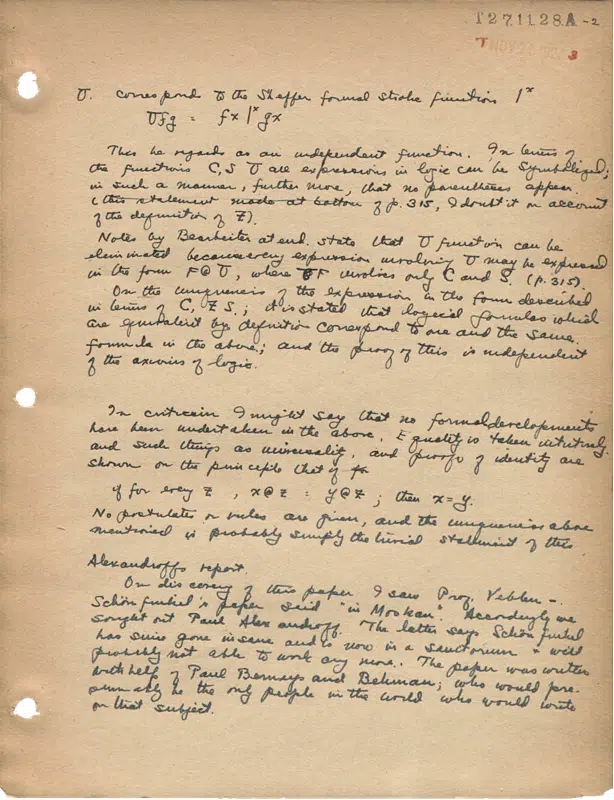 T27.11.28A-2
T NOV 28 1927 3
U. corresponds to the Sheffer formal stroke function |ˣ
Ufg = fx |ˣ gx
This he regards as an independent function. In terms of
the functions C, S U all expressions in logic can be symbolized;
in such a manner, further more, that no parentheses appear.
(this statement made at bottom of p. 315, I doubt it on account
of the definition of Z).
Notes by Bearbeiter at end. State that U function can be
eliminated because every expression involving U may be expressed
in the form F@U, where F involves only C and S. (p. 315).
On the uniqueness of the expression in the form described
in terms of C, Z S.; it is stated that logical formulas which
are equivalent by definition correspond to one and the same.
formula in the above; and the proof of this is independent
of the axioms of logic.
In criticism I might say that no formal developments
have been undertaken in the above. Equality is taken intuitively.
and such things as universality, and proofs of identity are
shown on the principle that if for
if for every z, x@z = y@z; then x=y.
No postulates or rules are given, and the uniqueness above
mentioned is probably simply the trivial statement of this
Alexandroffs report
On discovery of this paper I saw Prof. Veblen -.
Schönfinkel's paper said "in Moskau". Accordingly we
sought out Paul Alexandroff. The latter says Schönfinkel
has since gone insane and is now in a sanatorium & will
probably not able to work any more. The paper was written
with help of Paul Bernays and Behman; who would pre-
sumably be the only people in the world who would write
on that subject.